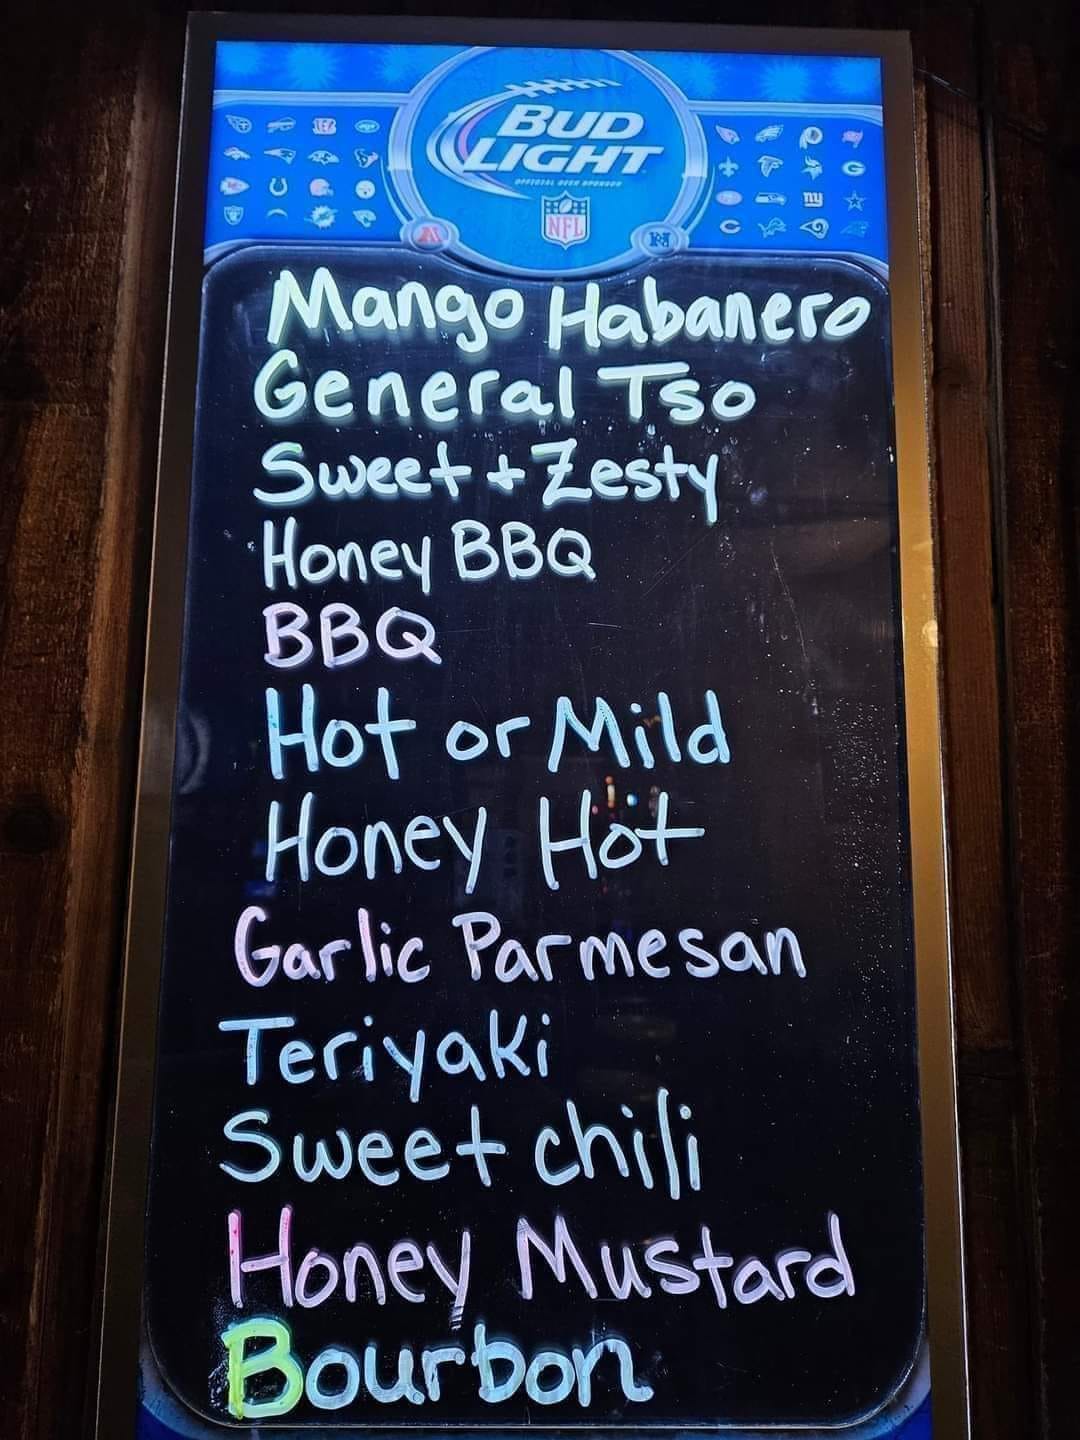 BUD
LIGHT
OFFICIAL BEER SPONSOR
NFL
Mango Habanero
General Tso
Sweet + Zesty
Honey BBQ
BBQ
Hot or Mild
Honey Hot
Garlic Parmesan
Teriyaki
Sweet chili
Honey Mustard
Bourbon